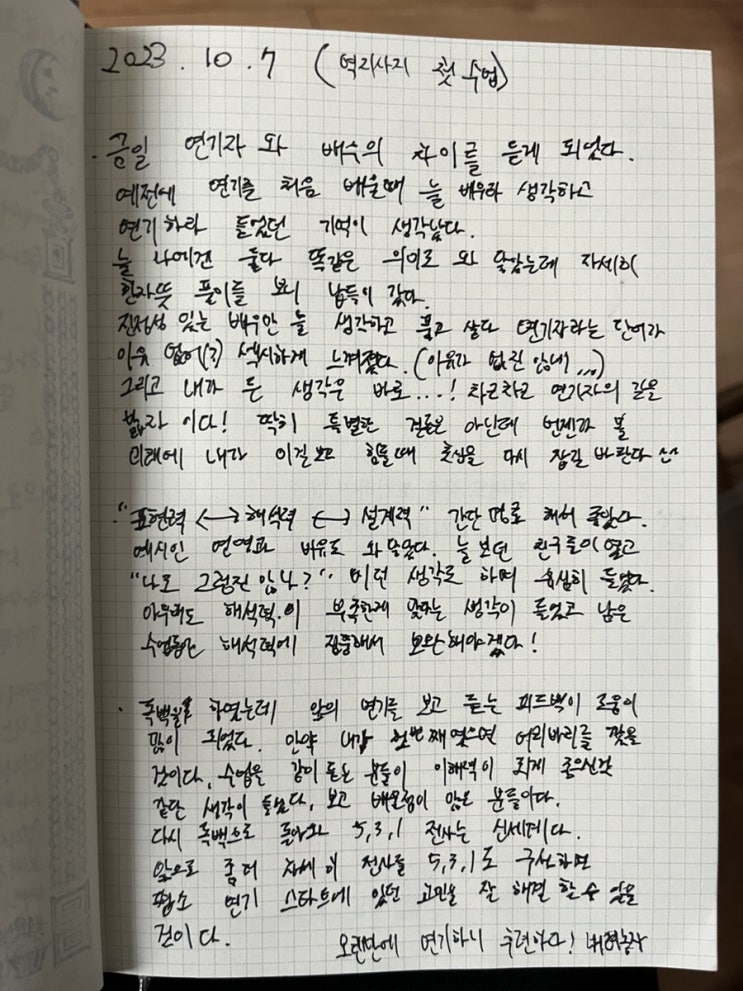 2023. 10. 7 (역지사지 첫 수업)
. 금일 연기자 와 배우의 차이를 듣게 되었다.
예전에 연기를 처음 배울때 늘 배우라 생각하고
연기 하라 들었던 기억이 생각났다.
늘 나에겐 둘다 똑같은 의미로 와 닿았는데 자세히
한자뜻 풀이를 보니 납득이 갔다.
진정성 있는 배우만 늘 생각하고 품고 살다 연기자라는 단어가
이유 없이(?) 섹시하게 느껴졌다. (이유가 없진 않네...)
그리고 내가 든 생각은 바로...! 차근차근 연기자의 길을
밟자 이다! 딱히 특별한 결론은 아닌데 언젠가 볼
미래에 내가 이걸 보고 힘들때 초심을 다시 잡길 바란다 ^^
. "표현력 <-> 해석력 <-> 설계력" 간단 명료 해서 좋았다.
예시인 연영과 배우도 와 닿았다. 늘 보던 친구들이 였고
"나도 그렇진 않나?" 이런 생각도 하며 유심히 들었다.
아무래도 해석력.이 부족한게 맞다는 생각이 들었고 남은
수업동안 해석력에 집중해서 보완해야겠다!
. 독백을 하였는데 앞의 연기를 보고 듣는 피드백이 도움이
많이 되었다. 만약 내가 첫번째 였으면 어리바리를 깠을
것이다. 수업을 같이 듣는 분들이 이해력이 되게 좋으신것
같단 생각이 들었다. 보고 배울점이 많은 분들이다.
다시 독백으로 돌아와 5,3,1 전사는 신세계다.
앞으로 좀더 자세히 전사를 5,3,1로 구성하면
평소 연기 스타트에 있던 고민을 잘 해결 할 수 있을
것이다.
오랜만에 연기하니 후련하다!